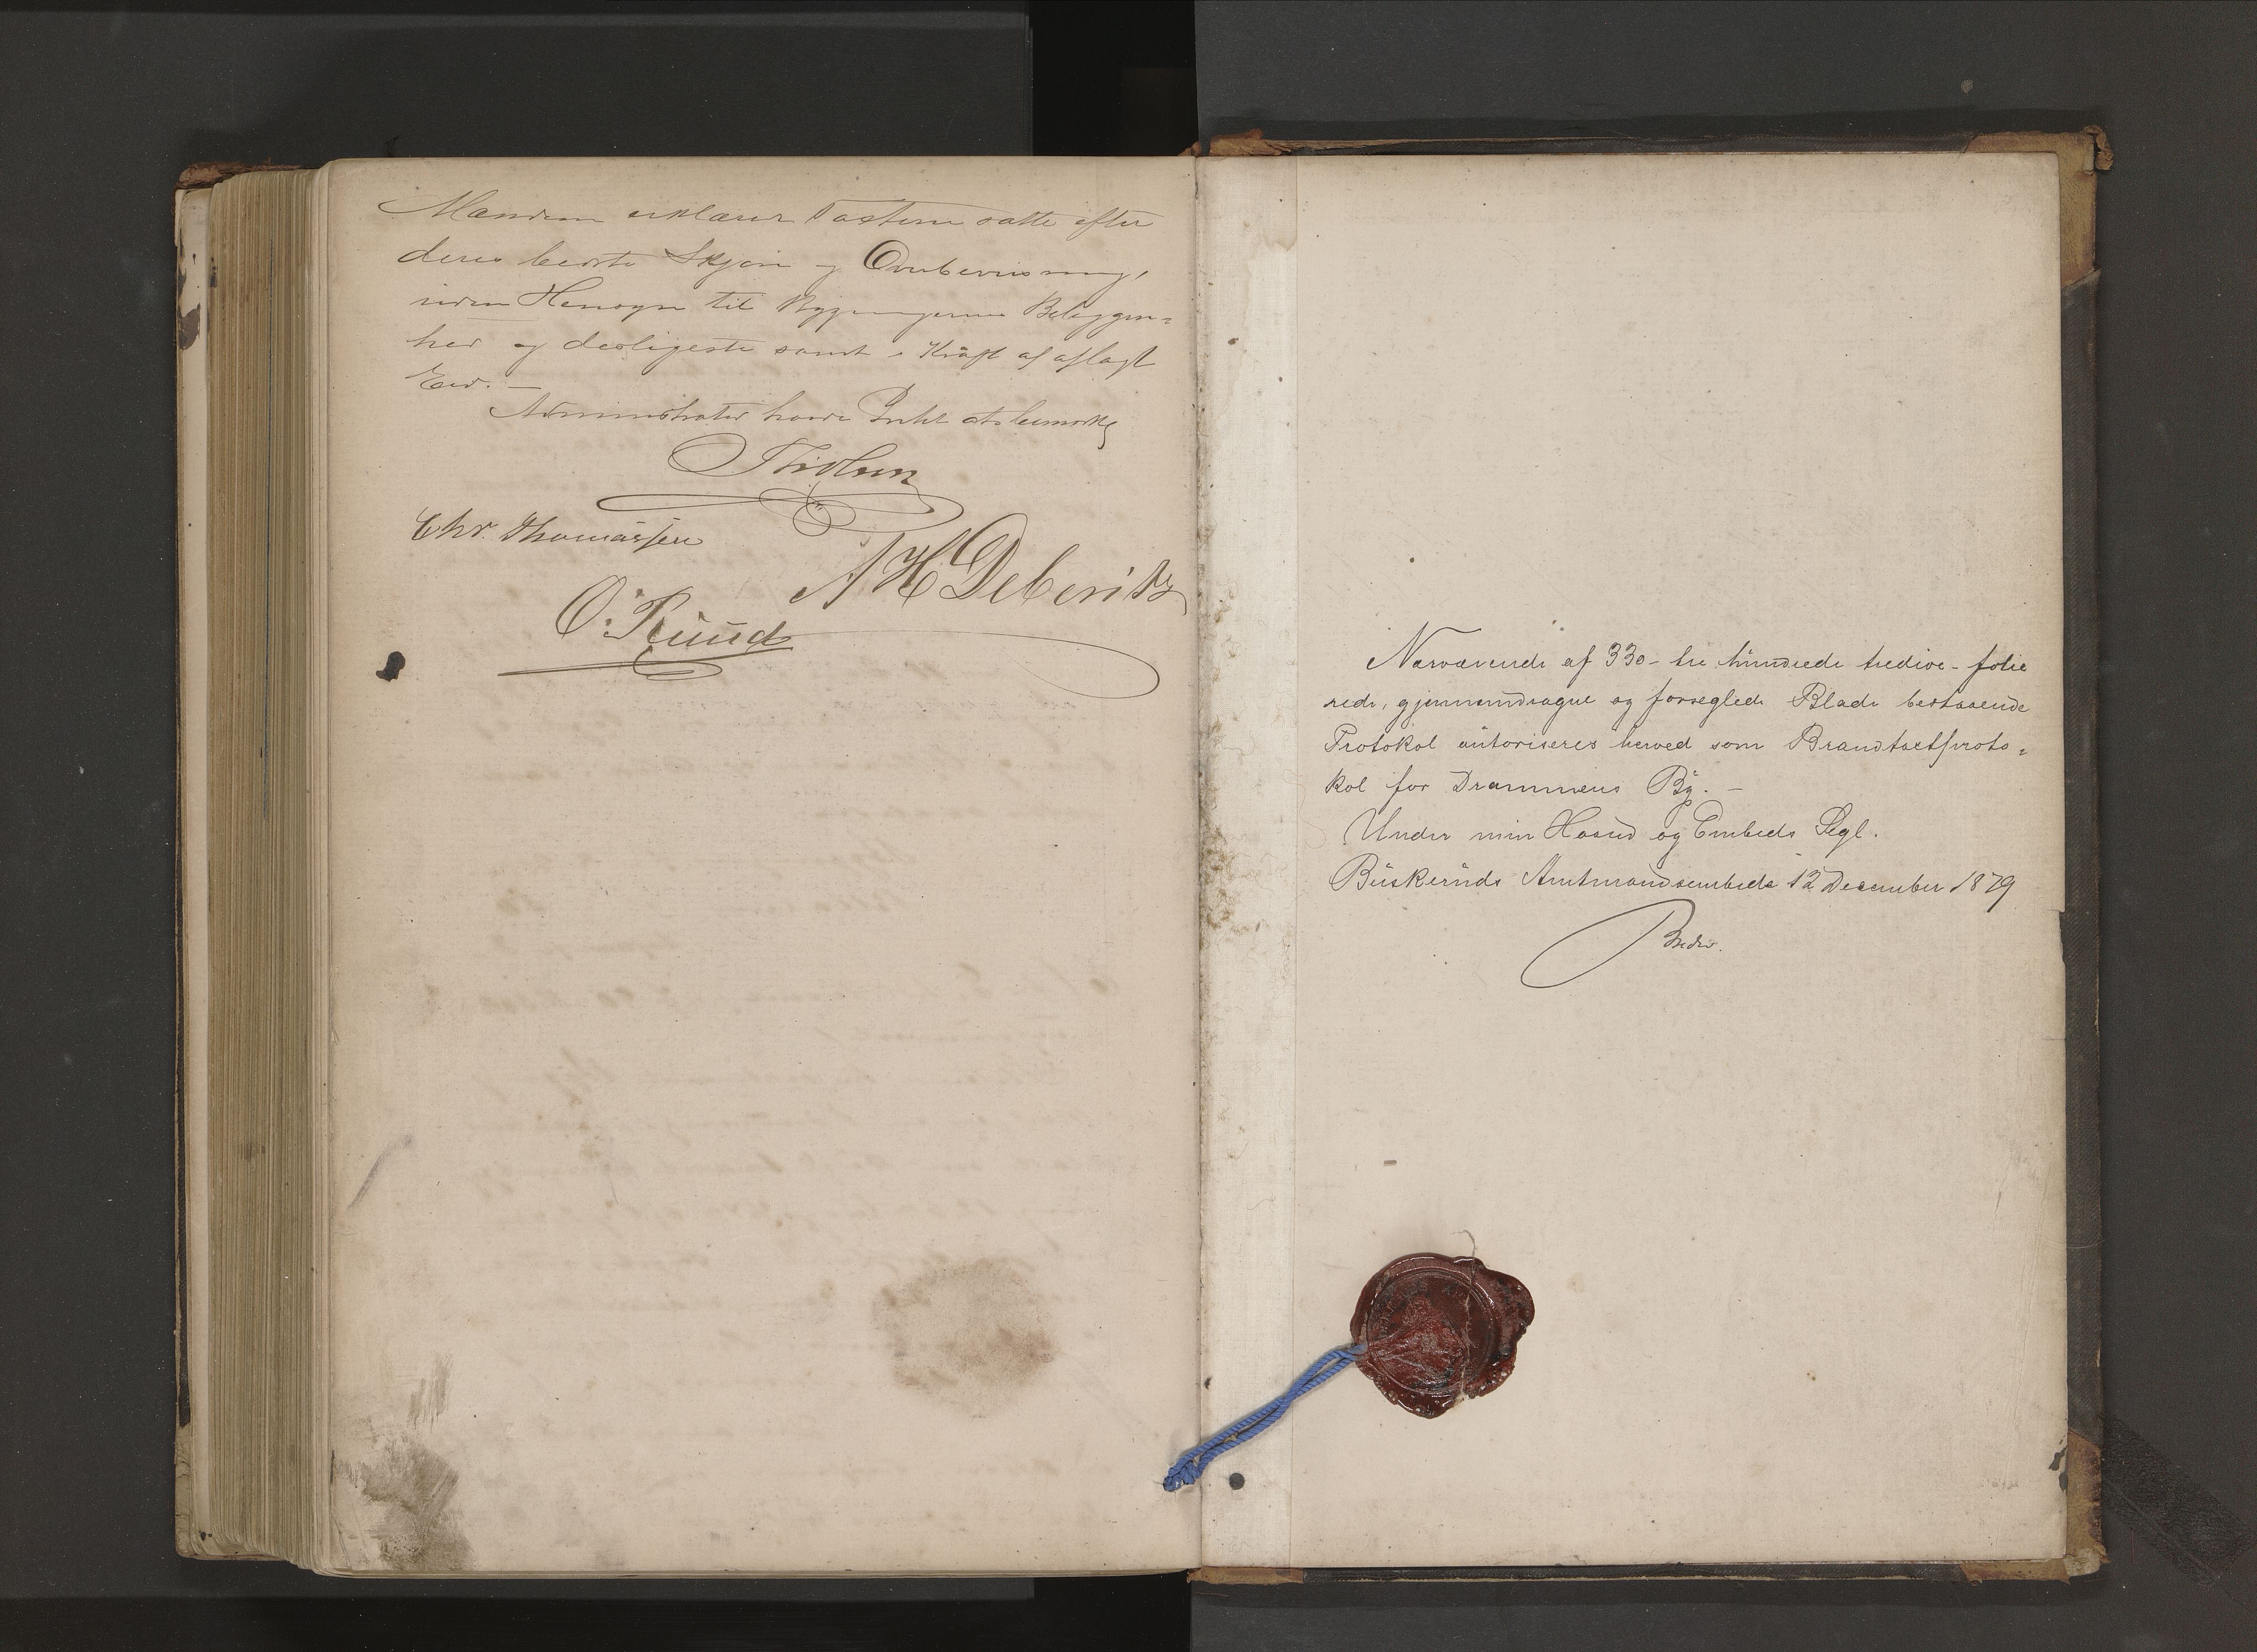 Mændene erklærer Taxterne satte efter
deres bedste Skjøn og Overbeviisning,
uden Hensyn til Bygningernes Beliggen=
hed og desligeste samt i Kraft af aflagt
Eed. —
Administrator havde Intet at bemærke
Chr. Thomassen
A H Deberitz
O. Ruud
Nærværende af 330 - tre hundrede tredive - folie
rede, gjennemdragne og forseglede Blade bestaaende
Protokol autoriseres herved som Brandtaxtproto=
kol for Drammens By. —
Under min Haand og Embeds Segl.
Buskeruds Amtmandsembede 12 December 1879